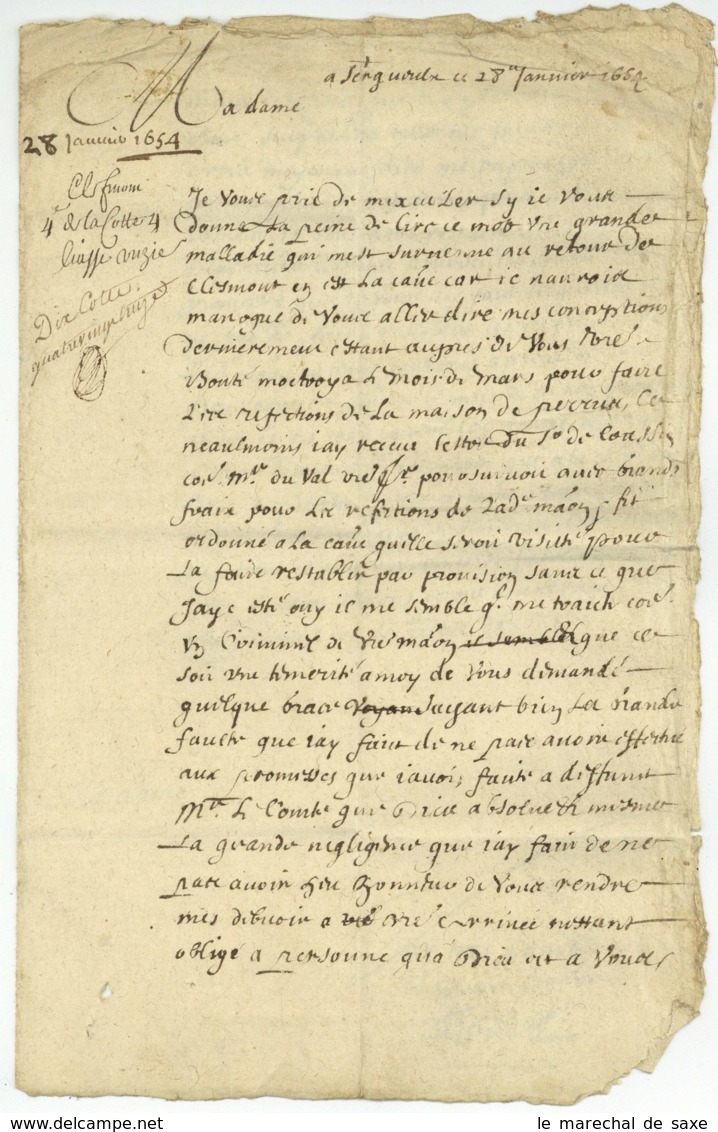 ce 28e Janvier 1654
Madame
28 Janvier 1654
4 de la Cotte 4
liasse unzie
Dix Cotte
quatre vingt unze
Je vous prie de mexcuser sy je vous
donne la peine de lire ce mot une grande
malladie qui mest survenue au retour de
Clermont en est la cause car je naurois
manqué de vous aller dire mes conceptions
dernierement estant aupres de vous vre
bonté moctroya le mois de mars pour faire
les refections de la maison de
neaulmoins jay receu lettre du Sr de
Mre du Val vre pour suivoir avec grands
frais pour les refections de ladte maon fit
ordonné a la cause quelle seroit visitée pour
la faire restablir par provision sans ce que
Jaye esté ouy il me semble q me traicte com
un Criminel de vre maon il semble que ce
soit une temerité a moy de vous demandé
quelque grace voyant sachant bien les grande
faulte que jay fait de ne pas avoir effectué
aux promesses que javois faite a deffunt
Mr le Comte que Dieu absolue et mesme
la grande negligence que jay fait de ne
pas avoir heu honneur de vous rendre
mes debvoir a vre vre arrivée nestant
obligé a personne qua Dieu et a vous
le marechal de saxe